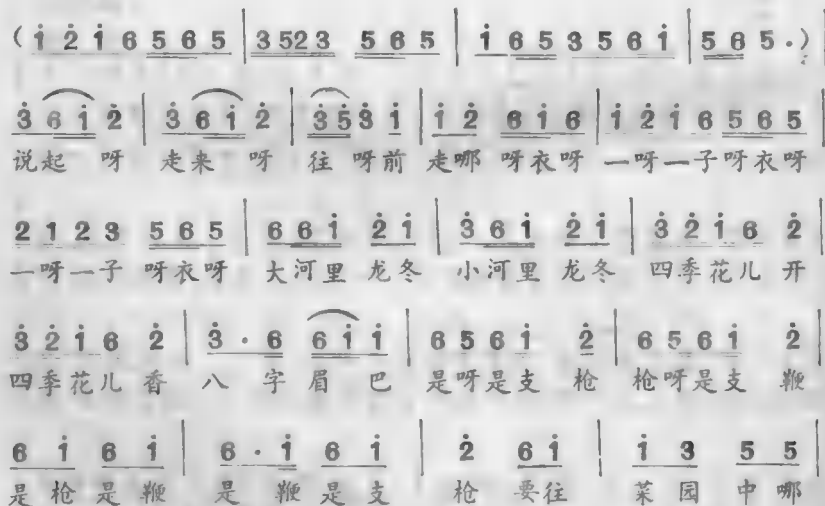 ( i̇ 2̇ i̇ 6 5 6 5 | 3 5 2 3 5 6 5 | i̇ 6 5 3 5 6 i̇ | 5 6 5 · ) |
3̇ 6 i̇ 2̇ | 3̇ 6 i̇ 2̇ | 3̇ 5̇ 3̇ i̇ | i̇ 2̇ 6 i̇ 6 | i̇ 2̇ i̇ 6 5 6 5
说起 呀 走来 呀 往 呀前 走哪 呀衣呀 一呀一子呀衣呀
2 1 2 3 5 6 5 | 6 6 i̇ 2̇ i̇ | 3̇ 6 i̇ 2̇ i̇ | 3̇ 2̇ i̇ 6 2̇ |
一呀一子 呀衣呀 大河里 龙冬 小河里 龙冬 四季花儿 开
3̇ 2̇ i̇ 6 2̇ | 3̇ · 6 6 i̇ i̇ | 6 5 6 i̇ 2̇ | 6 5 6 i̇ 2̇ |
四季花儿 香 八 字 眉 巴 是呀是支 枪 枪呀是支 鞭
6 i̇ 6 i̇ | 6 · i̇ 6 i̇ | 2̇ 6 i̇ | i̇ 3 5 5 |
是枪是鞭 是 鞭是支 枪 要往 菜园 中哪